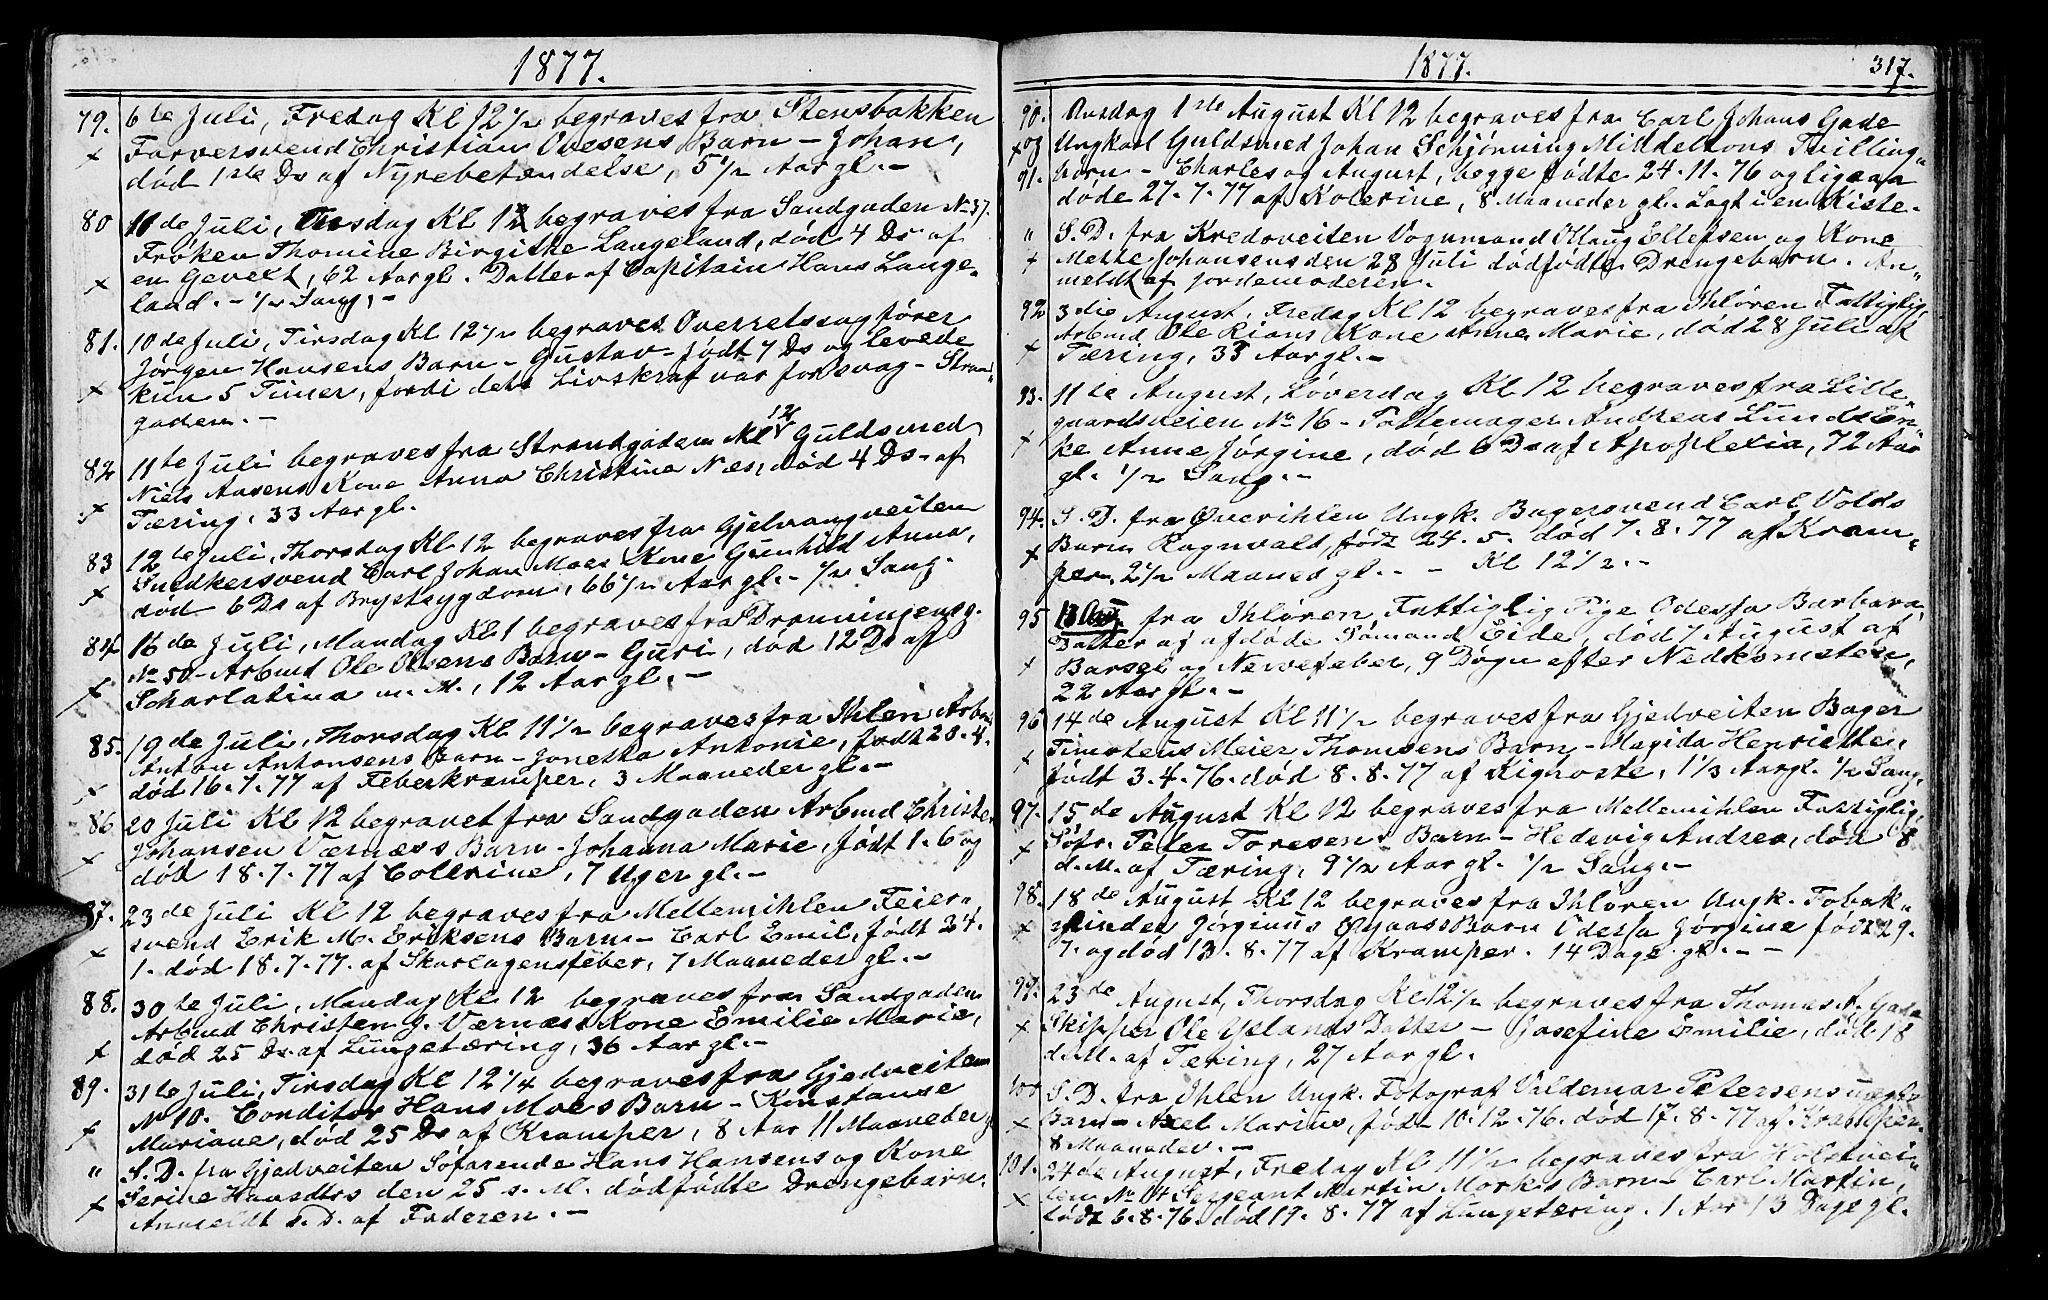 1877.
79. 6te Juli, Fredag Kl 12 1/2 begraves fra Stensbakken
Farversvend Christian Ovesens Barn - Johan,
død 1ste Ds af Nyrebetændelse, 5 1/2 Aar gl. -
80 11de Juli, Onsdag Kl 12 begraves fra Sandgaden No 37.
Frøken Thomine Birgitte Langeland, død 4 Ds af
en Gevext, 62 Aar gl. Datter af Capitain Hans Lange-
land. - 1/2 Sang. -
81. 10de Juli, Tirsdag Kl 12 1/2 begraves Overretssagfører
Jørgen Hansens Barn - Gustav - født 7 Ds og levede
kun 5 Timer, fordi dets Livskraf var for svag - Strand-
gaden. -
82 11te Juli begraves fra Strandgaden Kl 12 Guldsmed
Niels Aasens Kone Anna Christine Næs, død 4 Ds. af
Tæring, 33 Aar gl.
83 12te Juli, Thorsdag Kl 12 begraves fra Gjelvangveiten
Snedkersvend Carl Johan Moes Kone Gunhild Anna,
død 6 Ds af Brystsygdom, 66 1/2 Aar gl. - 1/2 Sang.
84 16de Juli, Mandag Kl 1 begraves fra Dronningensg.
No 50 - Arbmd Ole Olsens Barn - Guri, død 12 Ds af
Scharlatina m. M., 12 Aar gl. -
85. 19de Juli, Thorsdag Kl 11 1/2 begraves fra Ihlen Arbmd
Anton Antonsens Barn - Jonetta Antonie, født 20.4.
død 16.7.77 af Feberkramper, 3 Maaneder gl. -
86 20 Juli Kl 12 begravet fra Sandgaden Arbmd Christen
Johansen Værnæss Barn - Johanna Marie, født 1.6 og
død 18.7.77 af Collerine, 7 Uger gl. -
87. 23de Juli Kl 12 begraves fra Mellemihlen Feier-
svend Erik M. Eriksens Barn - Carl Emil, født 24.
1. død 18.7.77. af Skarlagensfeber, 7 Maaneder gl. -
88. 30te Juli, Mandag Kl 12 begraves fra Sandgaden
Arbmd Christen J. Værnæss Kone Emilie Marie,
død 25 Ds. af Lungetæring, 36 Aar gl. -
89. 31te Juli, Tirsdag Kl 12 1/4 begraves fra Gjedveiten
No 10. Conditor Hans Moes Barn - Konstanse
Mariane, død 25 Ds af Kramper, 8 Aar 11 Maaneder
" S. D. fra Gjedveiten Søfarende Hans Hansens og Kone
Serine Hansdtrs den 25 s. M. dødfødte Drengebarn.
Anmeldt s. D. af Faderen. -
1877. 317.
90. Onsdag 1ste August Kl 12 begraves fra Carl Johans Gade
og Ungkarl Guldsmed Johan Schjønning Middeltons Tvilling-
91. børn - Charles og August, begge fødte 24.11.76 og ligesaa
døde 27.7.77 af Kolerine, 8 Maaneder gl. Lagt i en Kiste.
" S. D. fra Kredsveiten Vognmand Ellefsen og Kone
Mette Johansens den 28 Juli dødfødte Drengebarn. An-
meldt af Jordemoderen.
92 3die August, Fredag Kl 12 begraves fra Ihløren Fattiglig,
Arbmd Ole Rians Kone Anne Marie, død 28 Juli af
Tæring, 33 Aar gl. -
93. 11te August, Løverdag Kl 12 begraves fra Lille-
gaardsveien No 16 - Pottemager Andreas Lunds En-
ke Anne Jørgine, død 6 Ds af Apoplexia, 72 Aar
gl. 1/2 Sang. -
94. S. D. fra Øverihlen Ungk. Bagersvend Carl Volds
Barn Ragnvald, født 24.5. død 7.8.77 af Kram-
per, 2 1/2 Maaned gl. - - Kl 12 1/2. -
95 13 Aug. fra Ihløren Fattiglig Pige Odessa Barbara,
Datter af afdøde Sømand Eide, død 7 August af
Barsel og Nervefeber, 9 Døgn efter Nedkomsten,
22 Aar gl. -
96 14de August Kl 11 1/2 begraves fra Gjedveiten Bager
Timoteus Meier Thomsens Barn - Magida Henriette,
født 3.4.76. død 8.8.77 af Kighoste, 1 1/3 Aar gl. 1/2 Sang.
97. 15de August Kl 12 begraves fra Mellemihlen Fattiglig,
Søfr. Peter Toresens Barn - Hedevig Andrea, død 8
d. M. af Tæring, 9 1/2 Aar gl. 1/2 Sang. -
98. 18de August Kl 12 begraves fra Ihløren Ungk. Tobak-
spinder Jørginus Øyaass Barn Odessa Jørgine født 29.
7. og død 13.8.77 af Kramper. 14 Dage gl. - -
99. 23de August, Thorsdag Kl 12 1/2 begraves fra Thomas A. Gade
Skipper Ole Yslands Datter - Josefine Emilie, død 18
d. M. af Tæring, 27 Aar gl.
100 S. D. fra Ihlen Ungk. Fotograf Valdemar Petersens uægte
Barn - Axel Marius, født 10.12.76. død 17.8.77 af Kramper.
8 Maaneder. -
101. 24de August, Fredag Kl 11 1/2 begraves fra Holstvei-
ten No Sergeant Martin Morks Barn - Carl Martin,
født 6.8.76. død 19.8.77 af Lungetæring. 1 Aar 13 Dage gl.